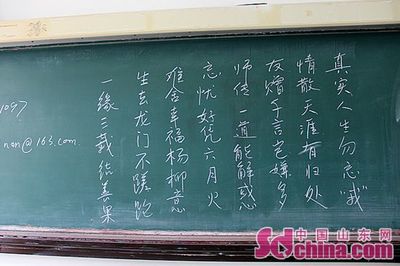 真实人生勿忘“我”
情散天涯有归处
友赠千言岂嫌多
师传一道能解惑
忘忧好凭六月火
难舍幸福杨柳意
生龙门不蹉跎
一緣三载结善果
1097
nan@163.com
中国山东网
sdchina.com